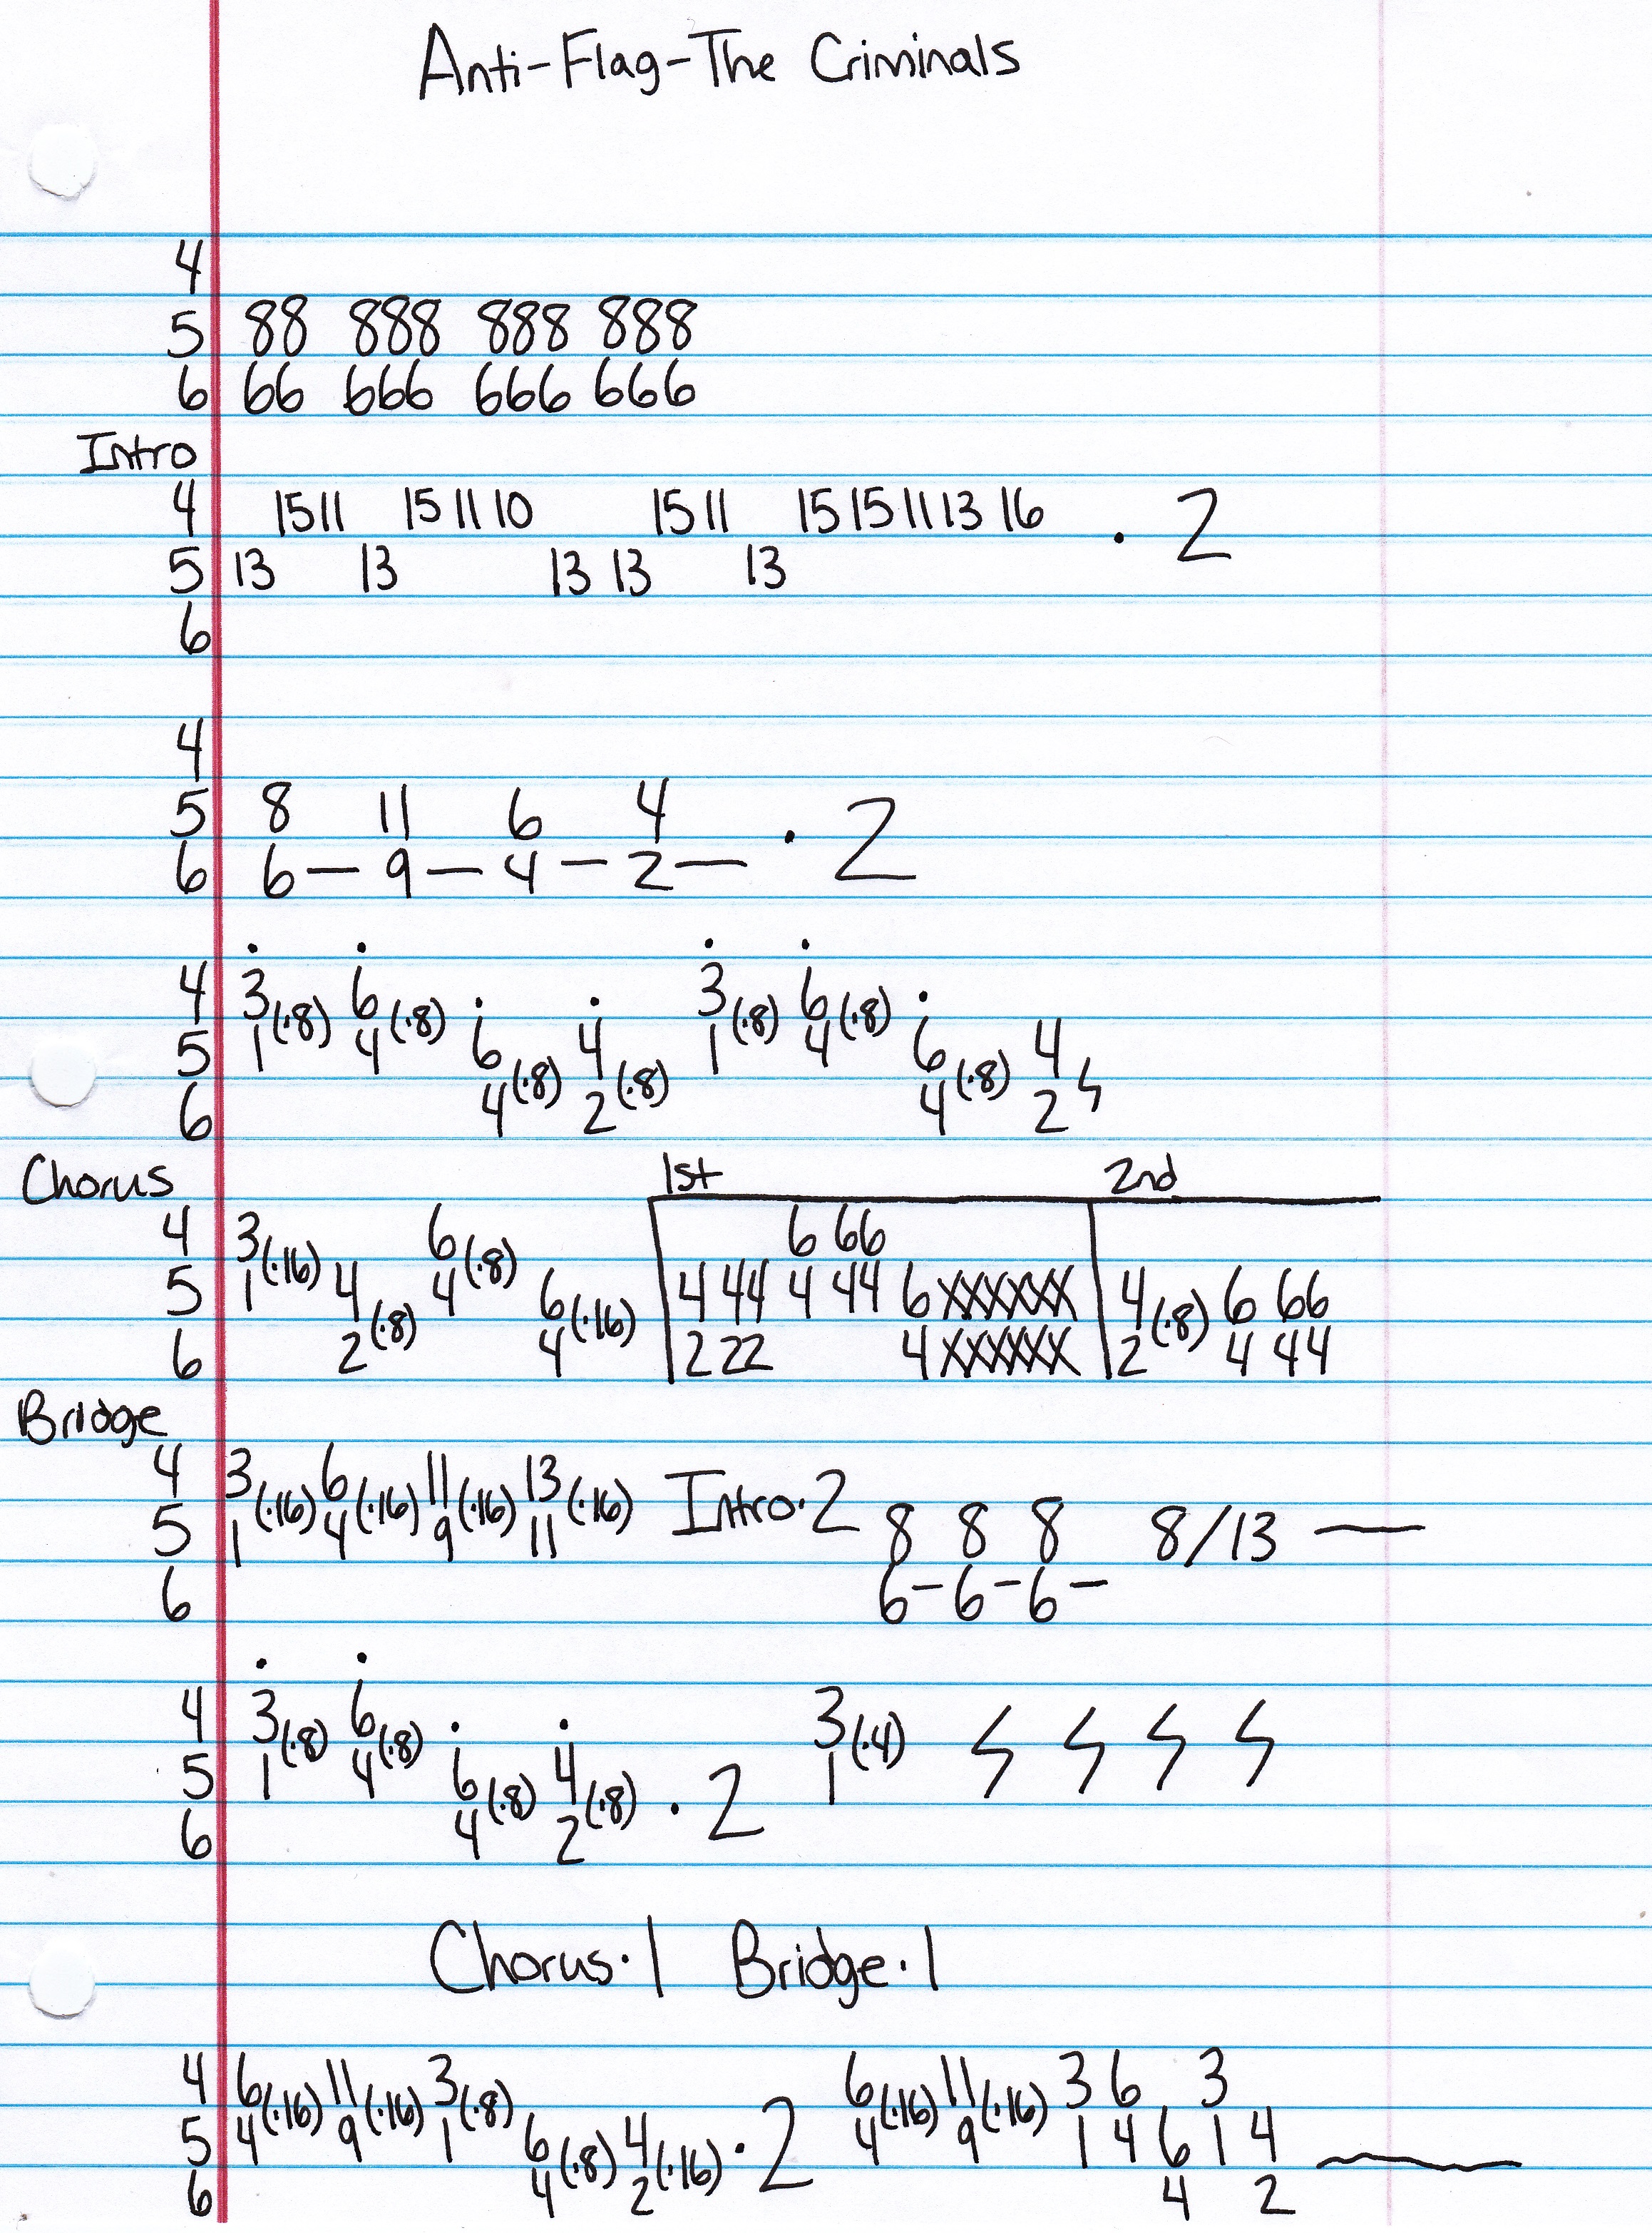 Anti-Flag-The Criminals
4
5 88 888 888 888
6 66 666 666 666
Intro
4 15 11 15 11 10 15 11 15 15 11 13 16 · 2
5 13 13 13 13 13
6
4
5 8 11 6 4 · 2
6 6 — 9 — 4 — 2 —
4 3 (·8) 6 (·8) 3 (·8) 6 (·8)
5 1 4 6 (·8) 4 (·8) 1 4 6 (·8) 4
6 4 2 4 2
Chorus 1st 2nd
4 3 (·16) 6 (·8) 6 66
5 1 4 (·8) 4 6 (·16) 4 44 4 44 6 XXXXXX 4 (·8) 6 66
6 2 4 2 22 4 XXXXXX 2 4 44
Bridge
4 3 (·16) 6 (·16) 11 (·16) 13 (·16) Intro·2
5 1 4 9 11 8 8 8 8/13 —
6 6 – 6 – 6 –
4 3 (·8) 6 (·8) 3 (·4)
5 1 4 6 (·8) 4 (·8) · 2 1
6 4 2
Chorus·1 Bridge·1
4 6 (·16) 11 (·16) 3 (·8) 6 (·16) 11 (·16) 3 6 3
5 4 9 1 6 (·8) 4 (·16) · 2 4 9 1 4 6 1 4
6 4 2 4 2